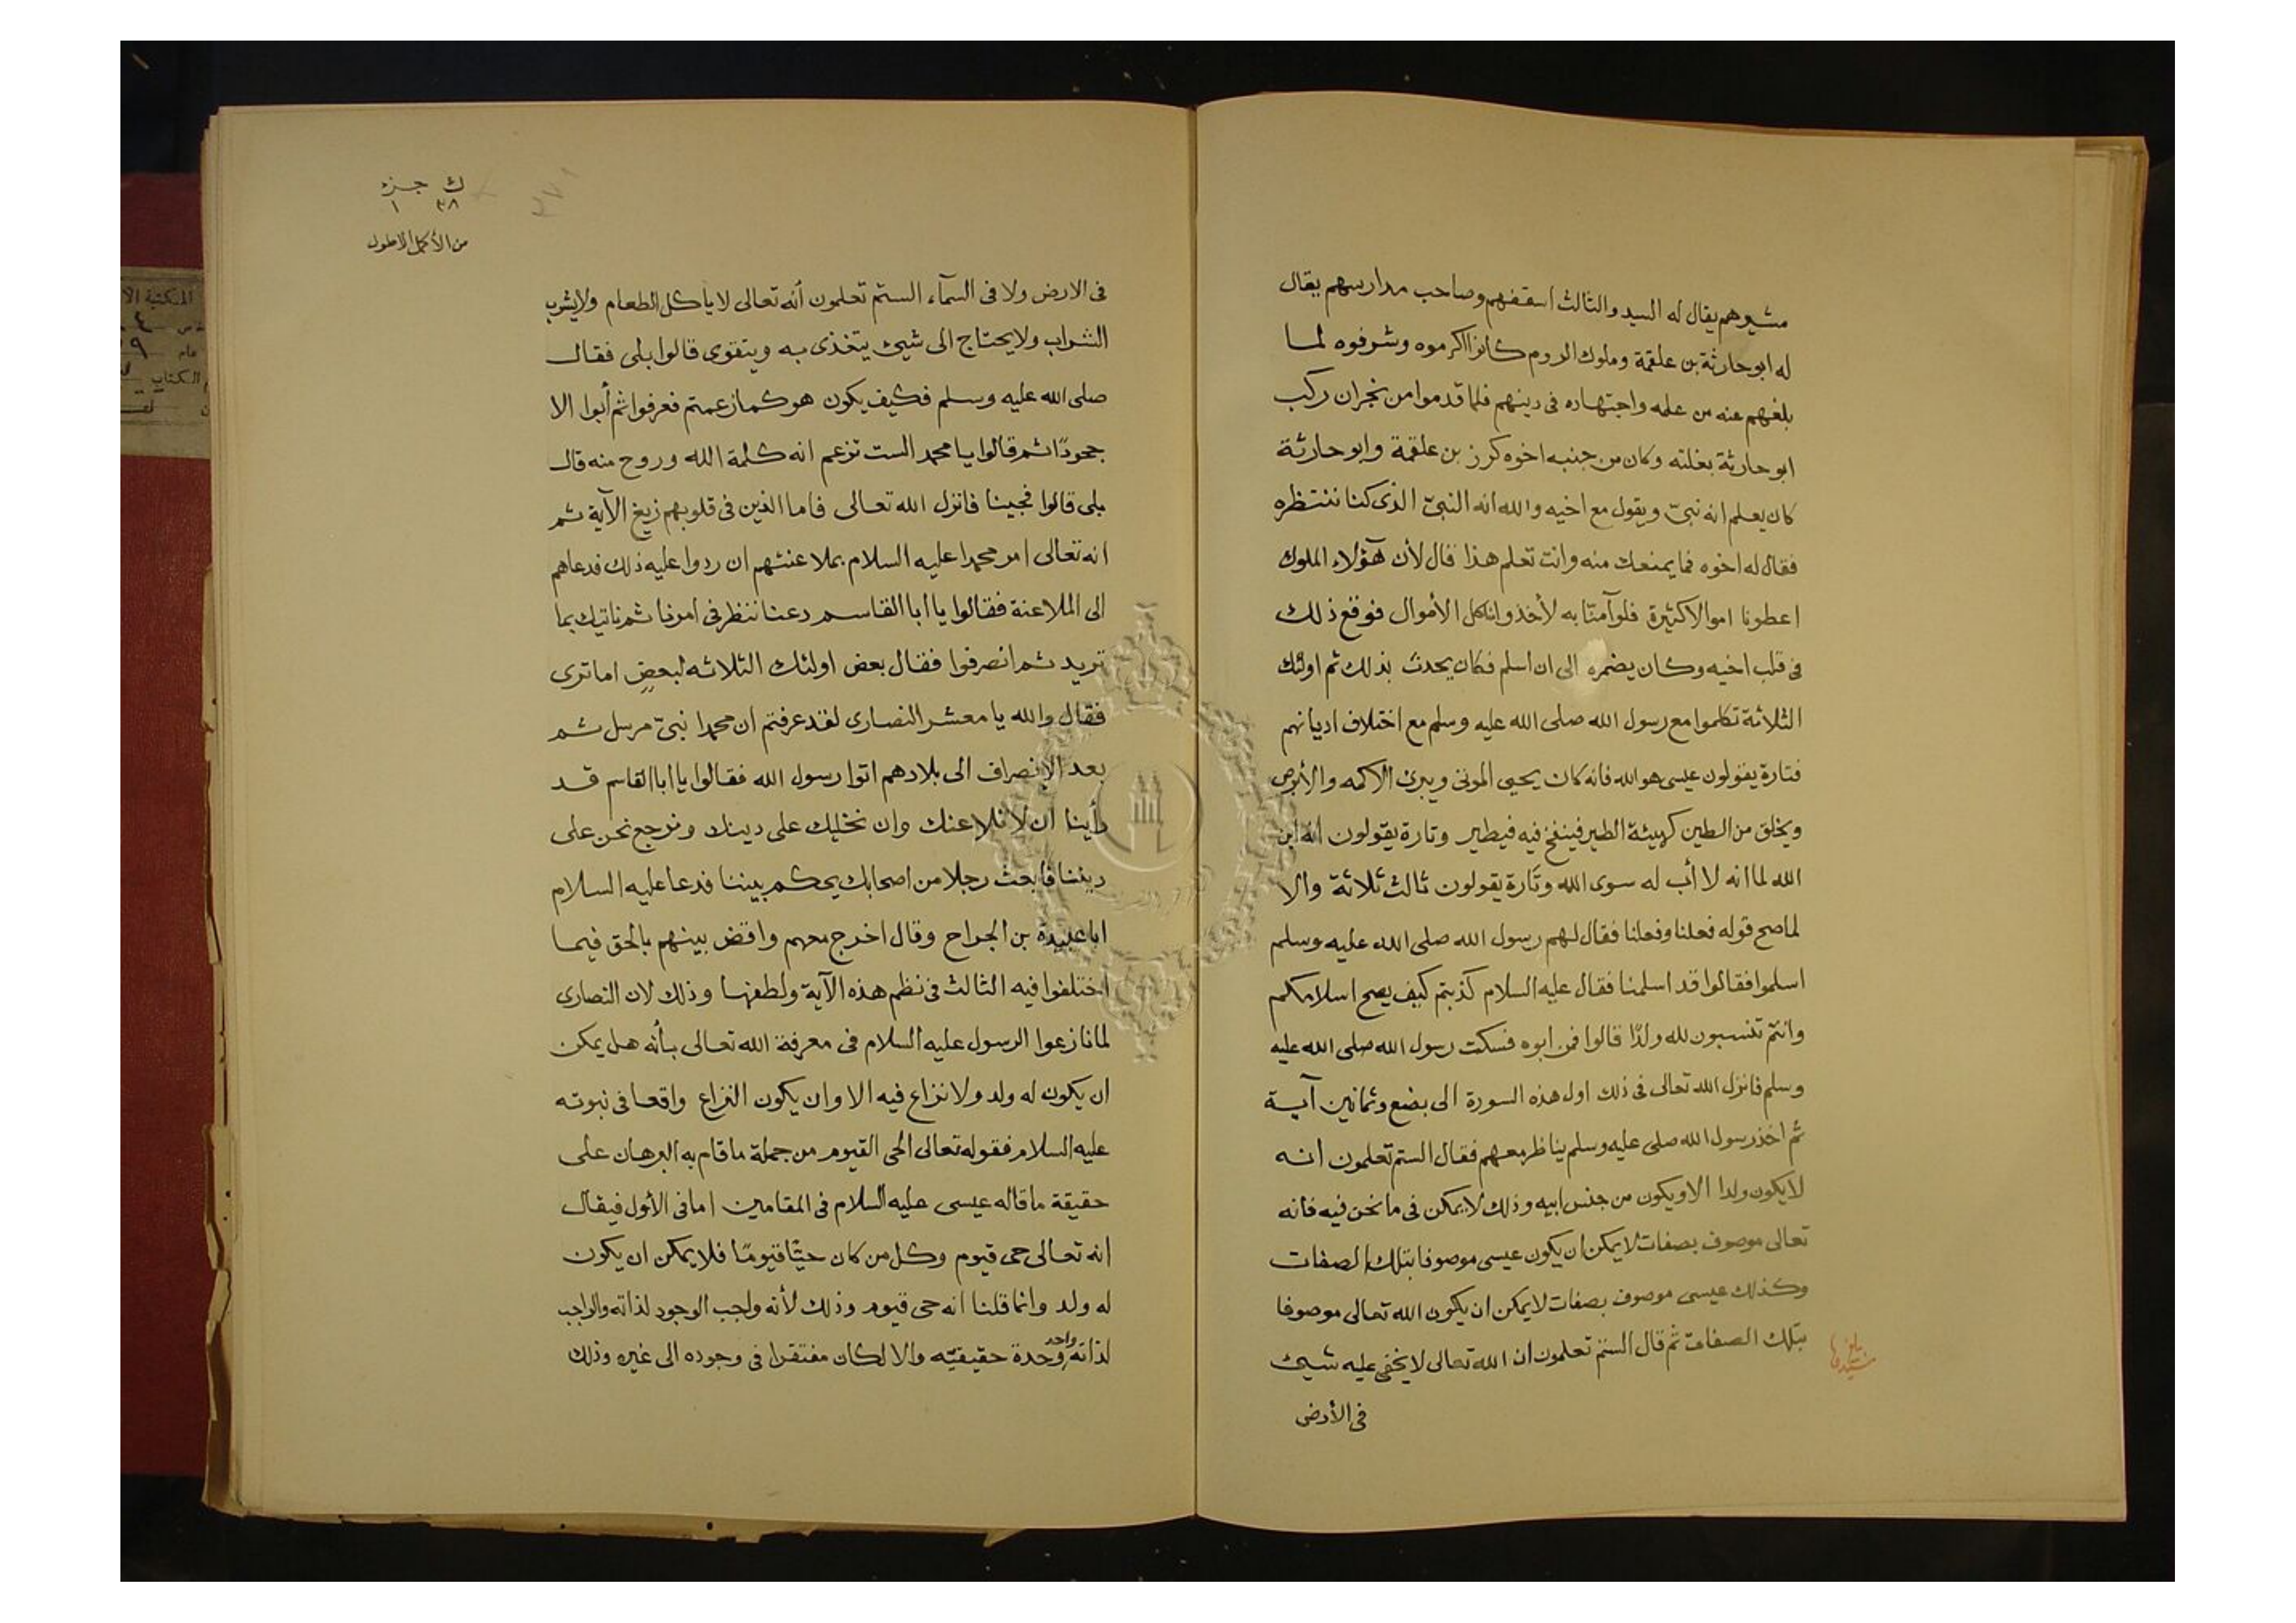 مشيرهم يقال له السيد والثالث اسقفهم وصاحب مدارسهم يقال
له ابو حارثة بن علقمة وملوك الروم كانوا اكرموه وشرفوه لما
بلغهم عنه من علمه واجتهاده فى دينهم فلما قدموا من نجران ركب
ابو حارثة بغلته وكان من جنبه اخوه كرز بن علقمة وابو حارثة
كان يعلم انه نبىّ ويقول مع اخيه والله انه النبىّ الذى كنا ننتظره
فقال له اخوه فما يمنعك منه وانت تعلم هذا قال لأن هؤلاء الملوك
اعطونا اموالا كثيرة فلو آمنّا به لأخذوا كل الأموال فوقع ذلك
فى قلب اخيه وكان يضمره الى ان اسلم فكان يحدث بذلك ثم اولئك
الثلاثة تكلموا مع رسول الله صلى الله عليه وسلم مع اختلاف اديانهم
فتارة يقولون عيسى هو الله فانه كان يحيى الموتى ويبرئ الاكمه والأبرص
ويخلق من الطين كهيئة الطير فينفخ فيه فيطير وتارة يقولون انه ابن
الله لما انه لا أب له سوى الله وتارة يقولون ثالث ثلاثة والا
لما صح قوله فعلنا وفعلنا فقال لهم رسول الله صلى الله عليه وسلم
اسلموا فقالوا قد اسلمنا فقال عليه السلام كذبتم كيف يصح اسلامكم
وانتم تنسبون لله ولدًا قالوا فمن ابوه فسكت رسول الله صلى الله عليه
وسلم فانزل الله تعالى فى ذلك اول هذه السورة الى بضع وثمانين آية
ثم اخذ رسول الله صلى عليه وسلم يناظر معهم فقال الستم تعلمون انه
لا يكون ولدا الا ويكون من جنس ابيه وذلك لا يمكن فى ما نحن فيه فانه
تعالى موصوف بصفات لا يمكن ان يكون عيسى موصوفا بتلك الصفات
وكذلك عيسى موصوف بصفات لا يمكن ان يكون الله تعالى موصوفا
بتلك الصفات ثم قال الستم تعلمون ان الله تعالى لا يخفى عليه شيئ
فى الأرض
ك جزء
٣٨ ١
من الأكمل الاطول
فى الارض ولا فى السمآء الستم تعلمون أنه تعالى لا ياكل الطعام ولا يشرب
الشراب ولا يحتاج الى شيئ يتغذى به ويتقوى قالوا بلى فقال
صلى الله عليه وسلم فكيف يكون هو كما زعمتم فعرفوا ثم أبوا الا
جحودًا ثم قالوا يا محمد الست تزعم انه كلمة الله وروح منه قال
بلى قالوا فحسبنا فانزل الله تعالى فاما الذين فى قلوبهم زيغ الآية ثم
انه تعالى امر محمدا عليه السلام بملاعنتهم ان ردوا عليه ذلك فدعاهم
الى الملاعنة فقالوا يا ابا القاسم دعنا ننظر فى امرنا ثم ناتيك بما
تريد ثم انصرفوا فقال بعض اولئك الثلاثه لبعضٍ اما ترى
فقال والله يا معشر النصارى لقد عرفتم ان محمدا نبىّ مرسل ثم
بعد الإنصراف الى بلادهم اتوا رسول الله فقالوا يا ابا القاسم قد
رأينا ان لا نلاعنك وان نخليك على دينك ونرجع نحن على
ديننا فابعث رجلا من اصحابك يحكم بيننا فدعا عليه السلام
ابا عبيدة بن الجراح وقال اخرج معهم واقض بينهم بالحق فيما
اختلفوا فيه الثالث فى نظم هذه الآية ولطفها وذلك لان النصارى
لما نازعوا الرسول عليه السلام فى معرفة الله تعالى بأنه هل يمكن
ان يكون له ولد ولا نزاع فيه الا وان يكون النزاع واقعا فى نبوته
عليه السلام فقوله تعالى الحى القيوم من جملة ما قام به البرهان على
حقيقة ما قاله عيسى عليه السلام فى المقامين اما فى الأول فيقال
انه تعالى حى قيوم وكل من كان حيّا قيومًا فلا يمكن ان يكون
له ولد وانما قلنا انه حى قيوم وذلك لأنه واجب الوجود لذاته والواجب
لذاته واحد وحدة حقيقيّه والا لكان مفتقرا فى وجوده الى غيره وذلك